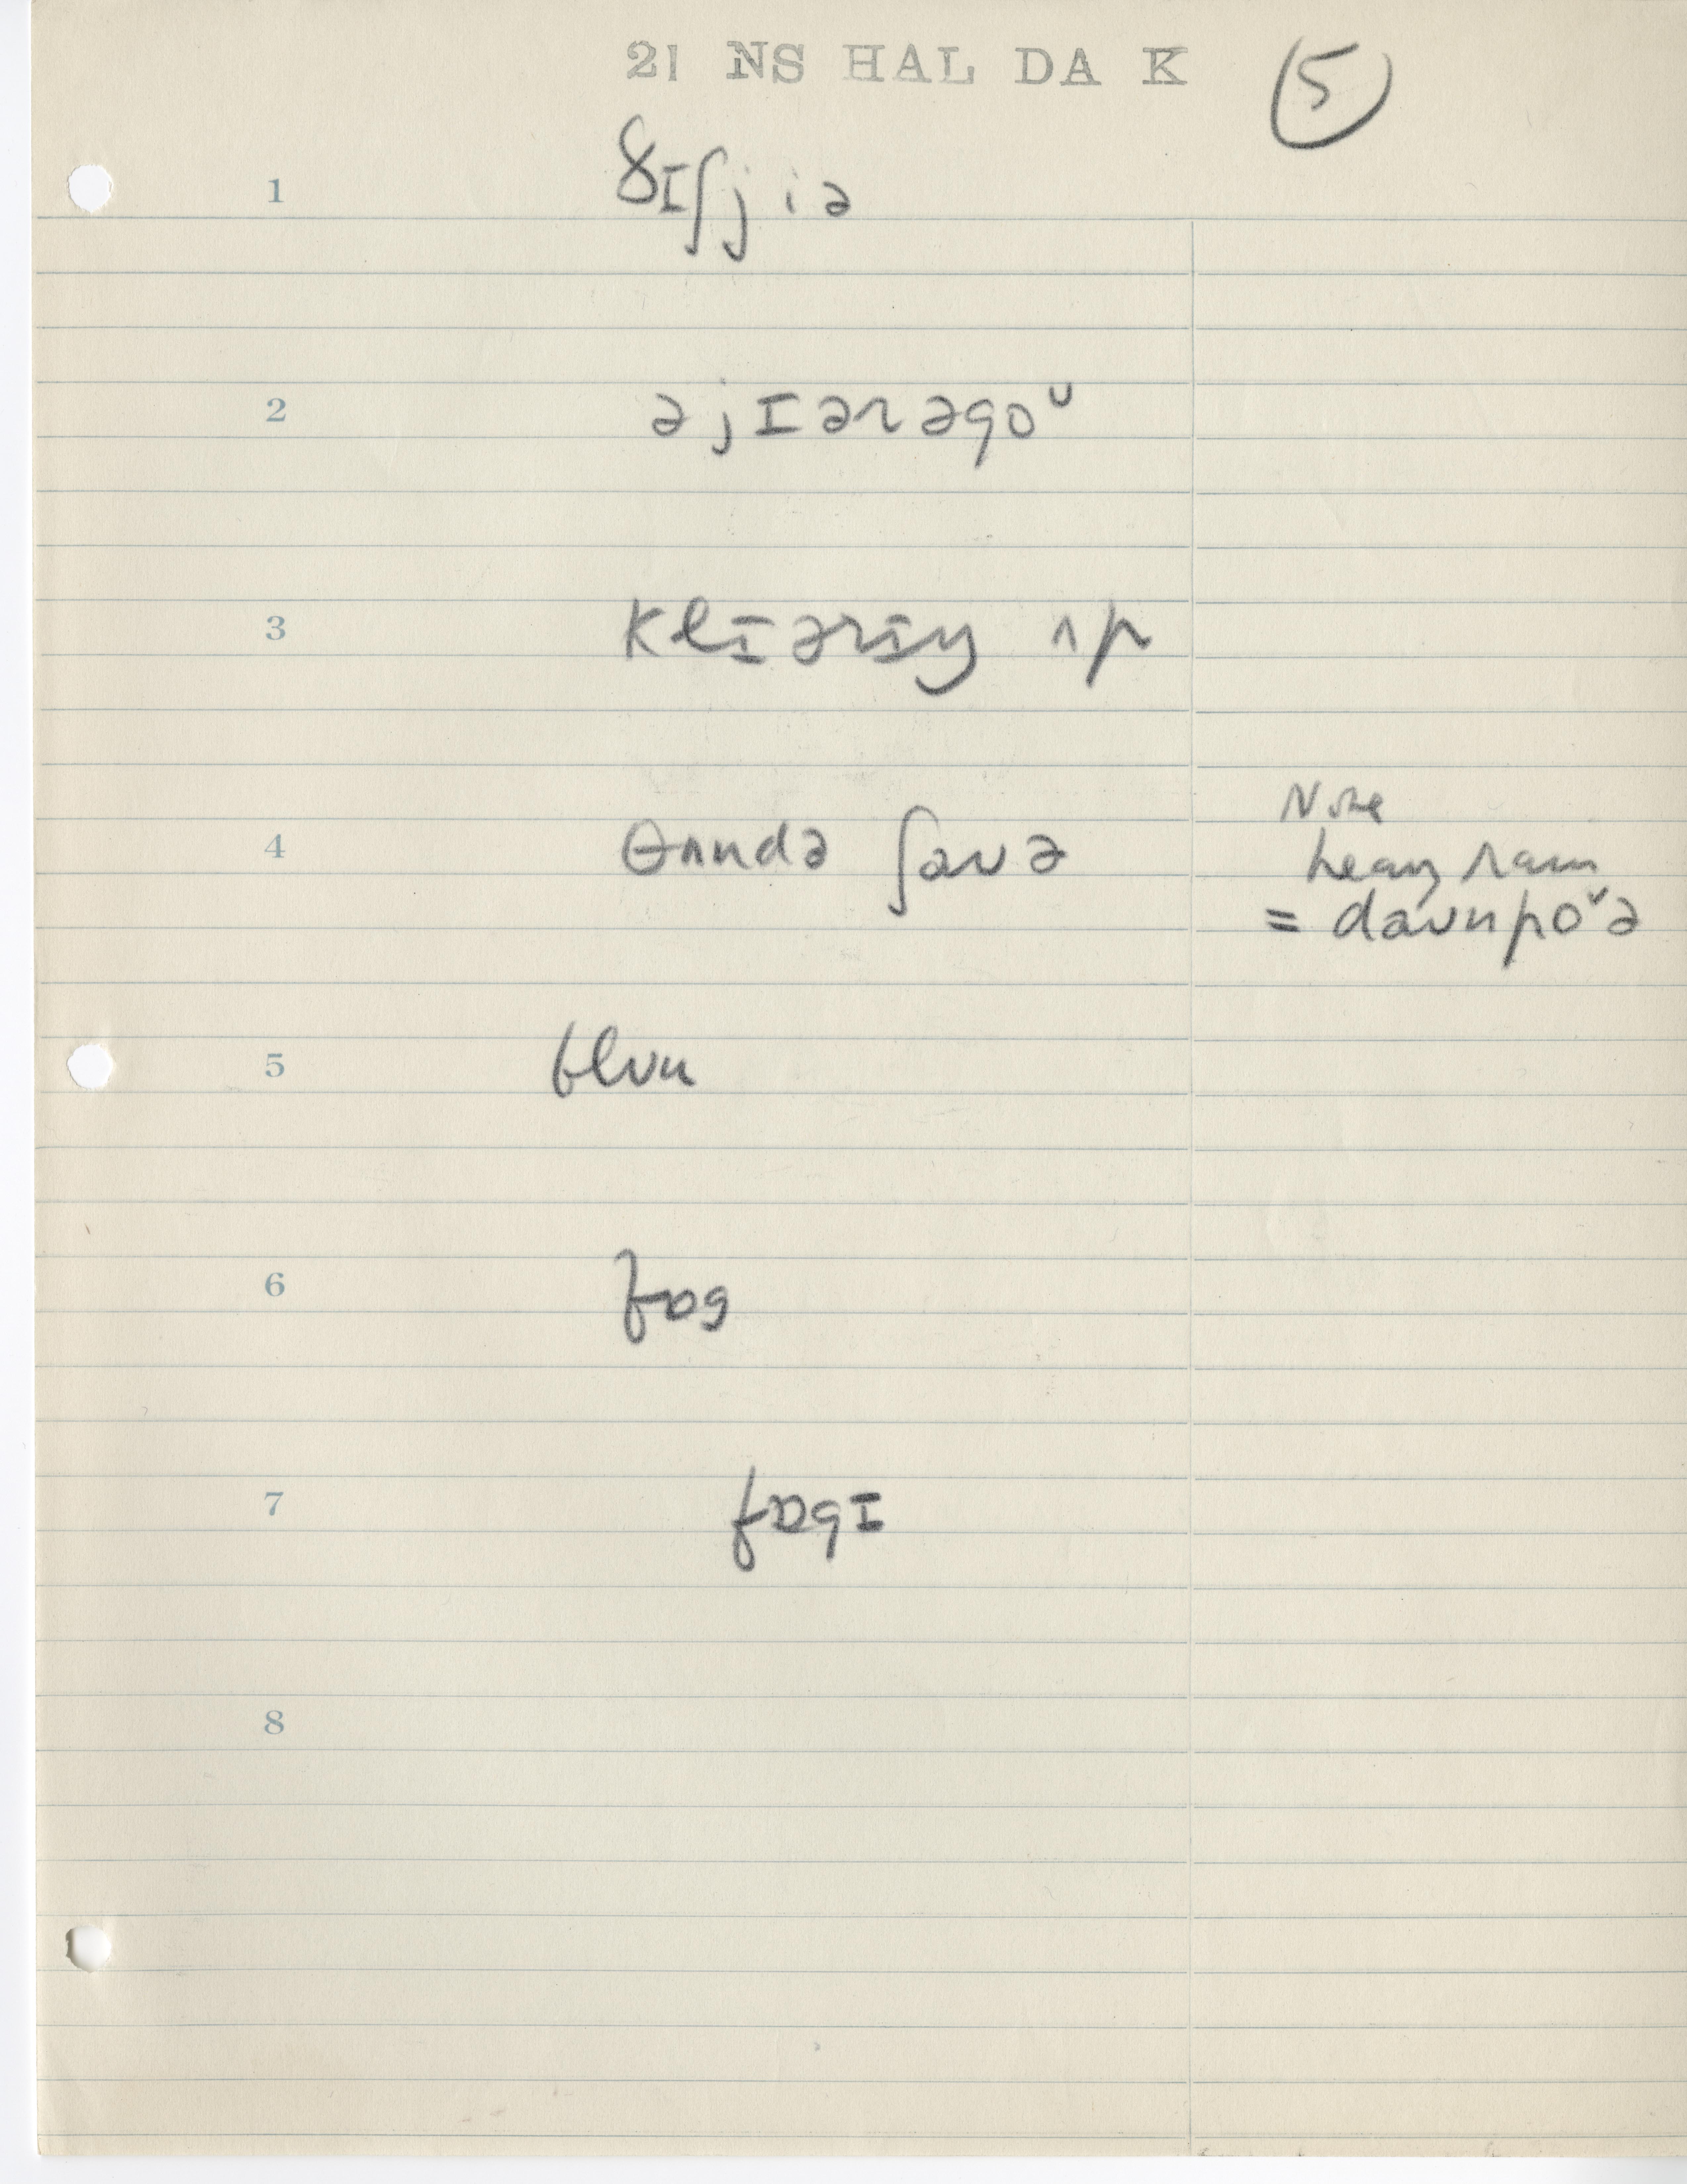 21 NS HAL DA K 5
1 ðɪʃjiə
2 əjɪərəgoᵘ
3 klɪərɪŋ ʌp
Note
4 θʌndə ʃauə heavy rain
= daunpoᵘə
5 bluu
6 fɒg
7 fɒgɪ
8